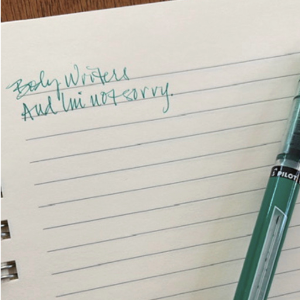 Body Writers
And I'm not sorry.
PILOT